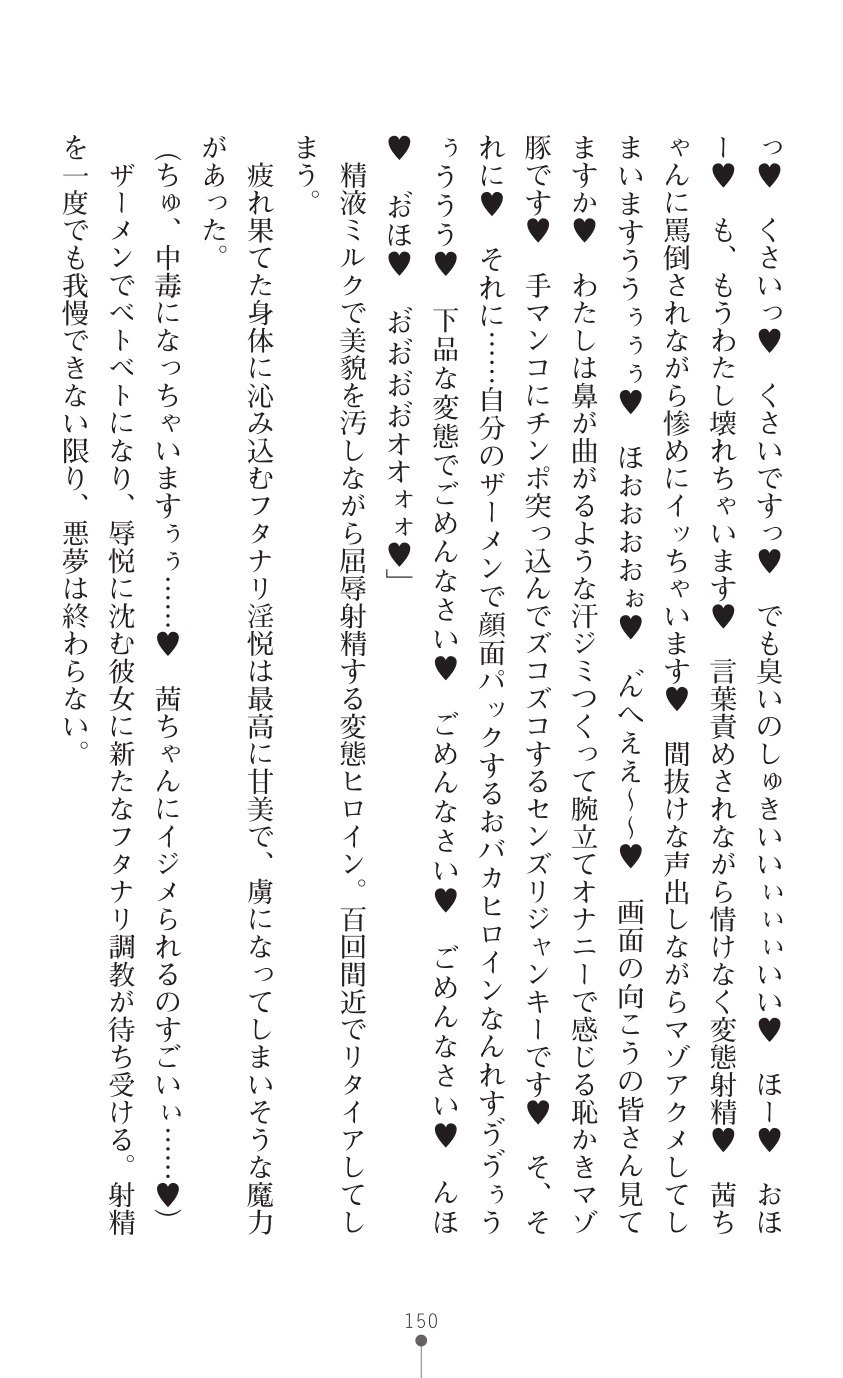 っ♥　くさいっ♥　くさいですっ♥　でも臭いのしゅきいいぃぃぃいい♥　ほー♥　おほ
ー♥　も、もうわたし壊れちゃいます♥　言葉責めされながら情けなく変態射精♥　茜ち
ゃんに罵倒されながら惨めにイッちゃいます♥　間抜けな声出しながらマゾアクメしてし
まいますううぅぅぅ♥　ほおおおおぉ♥　ん゛へええ～～♥　画面の向こうの皆さん見て
ますか♥　わたしは鼻が曲がるような汗ジミつくって腕立てオナニーで感じる恥かきマゾ
豚です♥　手マンコにチンポ突っ込んでズコズコするセンズリジャンキーです♥　そ、そ
れに♥　それに……自分のザーメンで顔面パックするおバカヒロインなんれすゔゔぅう
ぅううう♥　下品な変態でごめんなさい♥　ごめんなさい♥　ごめんなさい♥　んほ
♥　お゛ほ♥　お゛お゛お゛お゛オオォォ♥」
精液ミルクで美貌を汚しながら屈辱射精する変態ヒロイン。百回間近でリタイアしてし
まう。
疲れ果てた身体に沁み込むフタナリ淫悦は最高に甘美で、虜になってしまいそうな魔力
があった。
（ちゅ、中毒になっちゃいますぅぅ……♥　茜ちゃんにイジメられるのすごいぃ……♥）
ザーメンでベトベトになり、辱悦に沈む彼女に新たなフタナリ調教が待ち受ける。射精
を一度でも我慢できない限り、悪夢は終わらない。
150